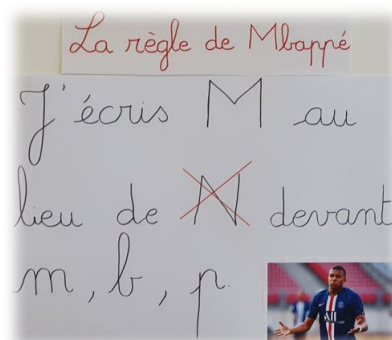 La règle de Mbappé
J'écris M au
lieu de N devant
m, b, p.
ALL